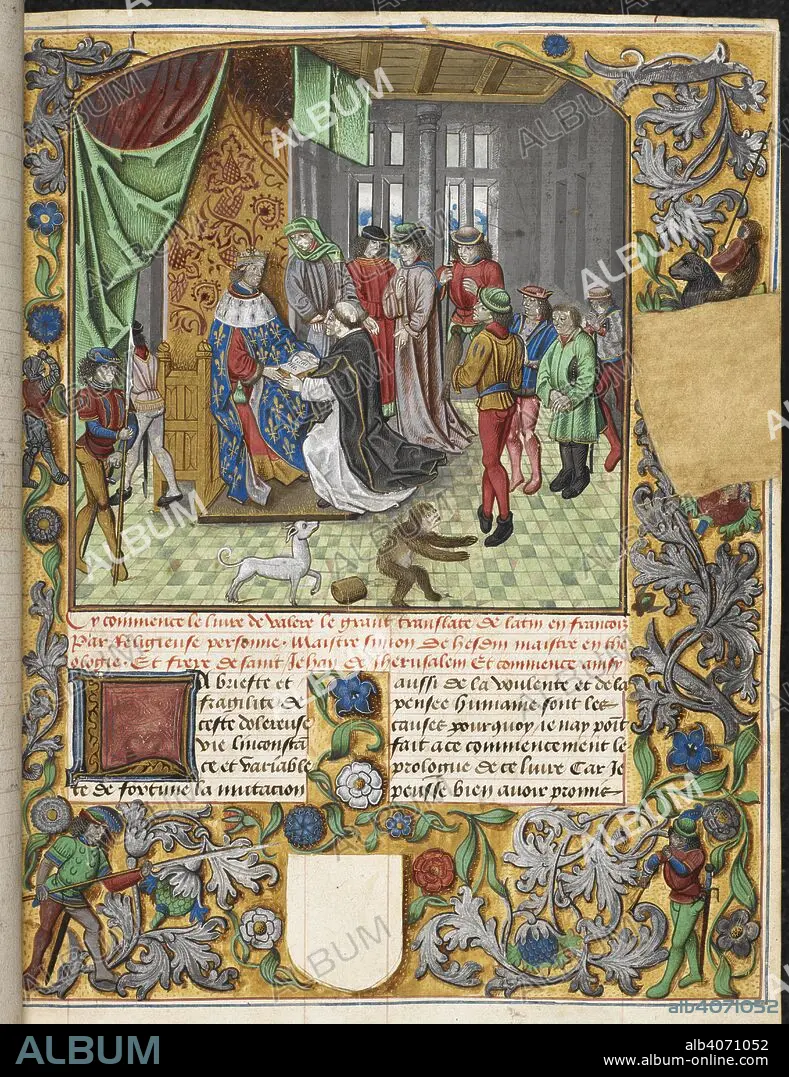 Cy commence le liure de valere le grant translate de latin en francois
Par Religieuse personne. Maistre simon de hesdin maistre en the
ologie. Et frere de saint Jehan de Jherusalem Et commence ainsy
A briefte et
fragilite de
ceste dolereuse
vie linconstā
ce et variable
te de fortune la mutation
aussi de la voulente et de la
pensee humaine sont les
causes pourquoy ie nay point
fait a ce commencement le
prologue de ce liure Car Je
peusse bien auoir promis
ALBUM
alb4071052
ALBUM
alb4071052
www.album-online.com